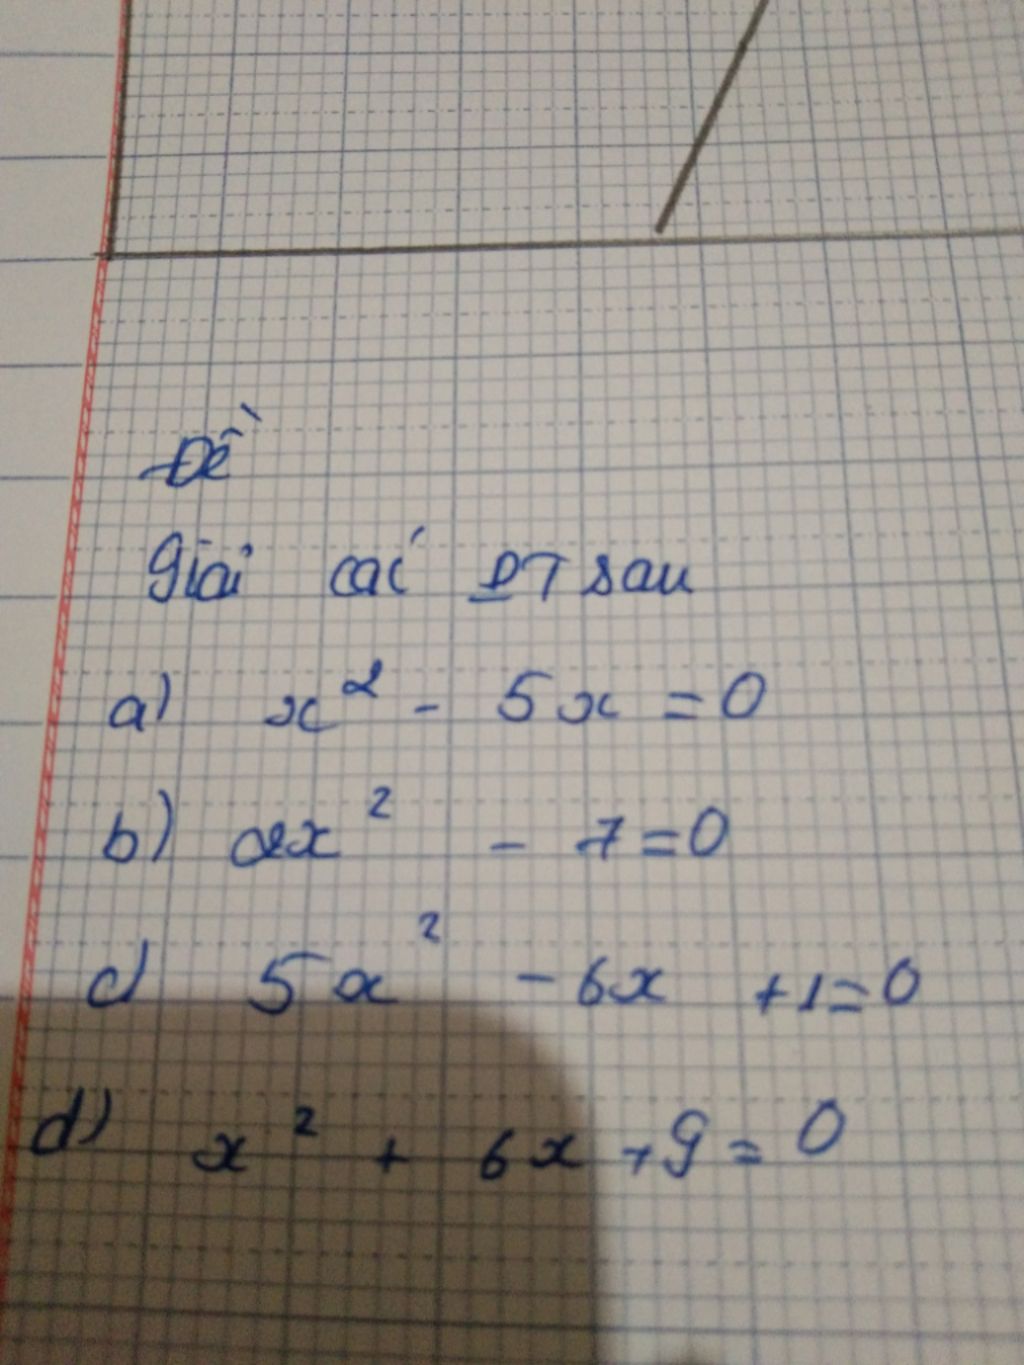 Đề
Giải các PT sau
a) x² - 5x = 0
b) 2x² - 7 = 0
c) 5x² - 6x + 1 = 0
d) x² + 6x + 9 = 0